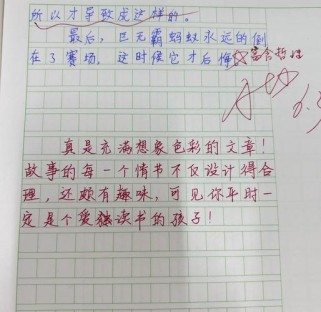 所以才导致成这样的。
最后，巨无霸蚂蚁永远的倒
在了赛场，这时候它才后悔
富含哲理
真是充满想象色彩的文章！
故事的每一个情节不仅设计得合
理，还颇有趣味，可见你平时一
定是个爱独读书的孩子！